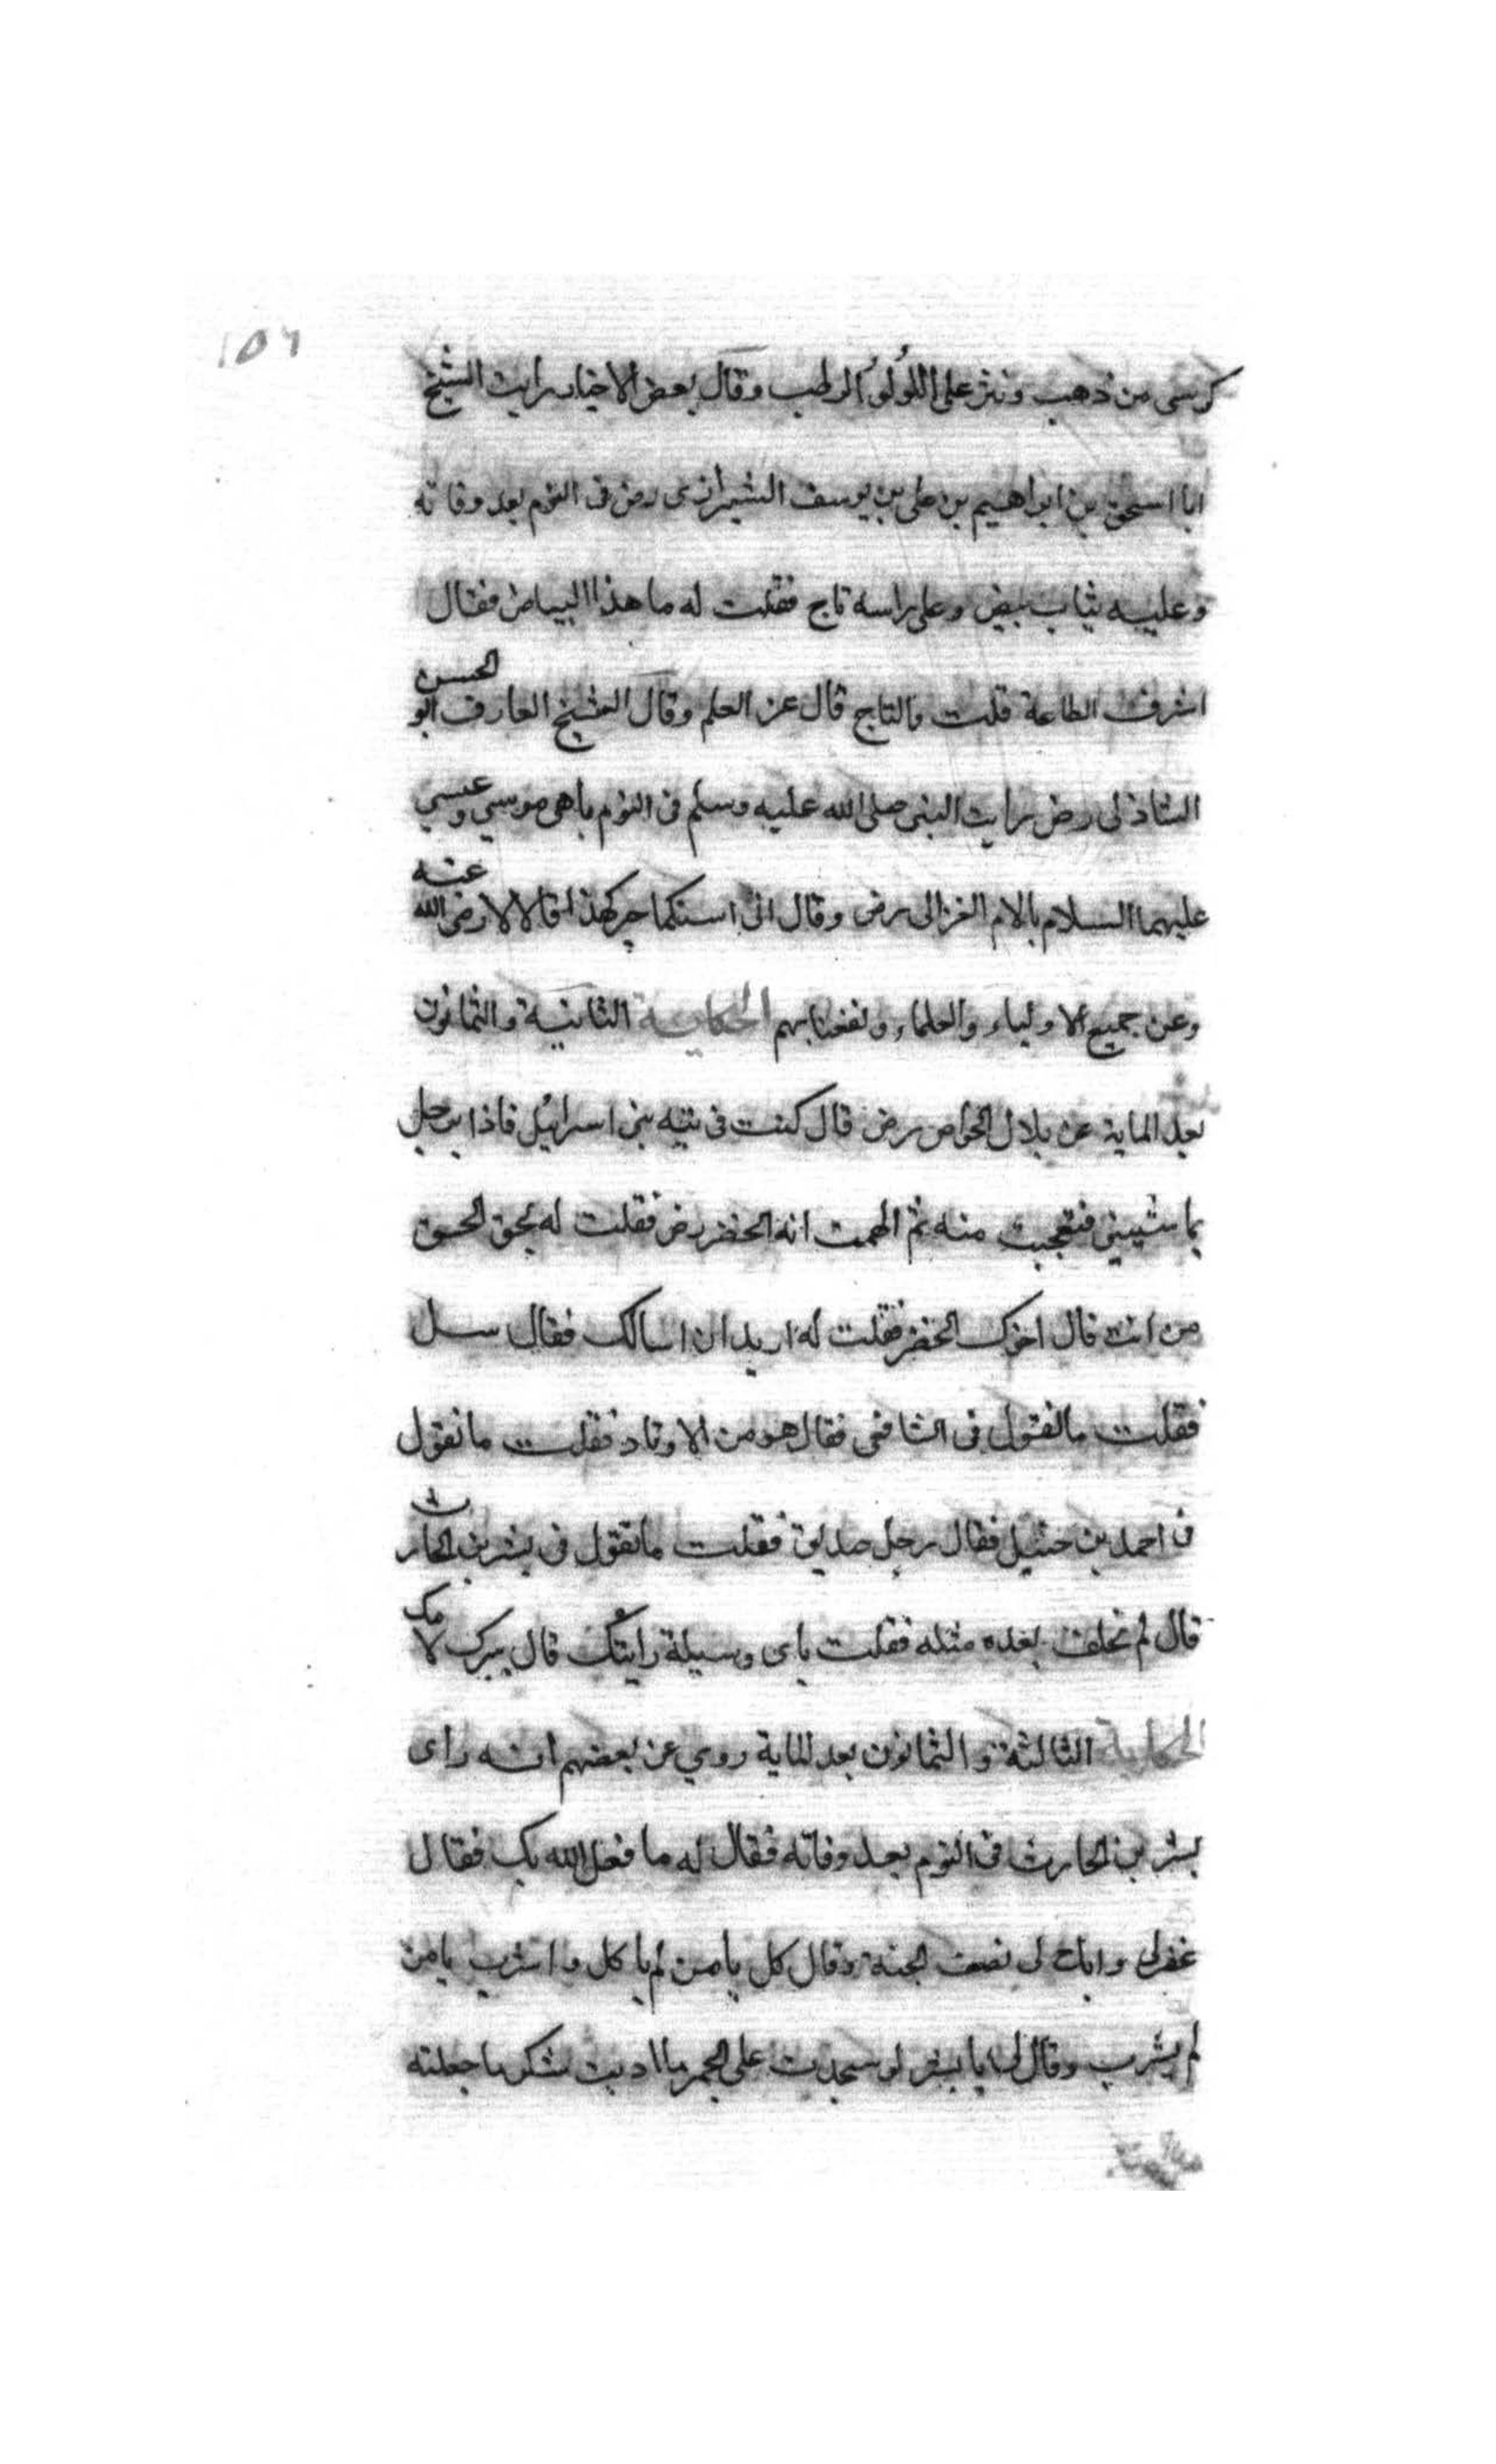 ١٥٦
كرسى من ذهب ونثر على اللولؤ الرطب وقال بعض الاخيار رايت الشيخ
ابا اسحق بن ابراهيم بن على بن يوسف الشيرازى رض فى النوم بعد وفاته
وعليه ثياب بيض وعلى راسه تاج فقلت له ما هذا البياض فقال
اشرف الطاعة قلت والتاج قال عز العلم وقال الشيخ العارف ابو الحسن
الشاذلى رض رايت النبى صلى الله عليه وسلم فى النوم باهى موسى وعيسى
عليهما السلام بالامام الغزالى رض وقال افى امتكما حبر كهذا قالا لا رضى الله عنه
وعن جميع الاولياء والعلماء ونفعنا بهم الحكاية الثانية والثمانون
بعد الماية عن بلال الخواص رض قال كنت فى تيه بنى اسرائيل فاذا برجل
يماشينى فتعجبت منه ثم الهمت انه الخضر رض فقلت له بحق الحق
من انت قال اخوك الخضر فقلت له اريد ان اسالك فقال سل
فقلت ما تقول فى الشافعى فقال هو من الاوتاد فقلت ما تقول
فى احمد بن حنبل فقال رجل صديق فقلت ما تقول فى بشر بن الحارث
قال لم يخلف بعده مثله فقلت باى وسيلة رايتك قال ببرك لامك
الحكاية الثالثة والثمانون بعد الماية روي عن بعضهم انه راى
بشر بن الحارث فى النوم بعد وفاته فقال له ما فعل الله بك فقال
غفر لى واباح لى نصف الجنة وقال كل يا من لم ياكل واشرب يا من
لم يشرب وقال لى يا بشر لو سجدت على الجمر ما اديت شكر ما جعلته